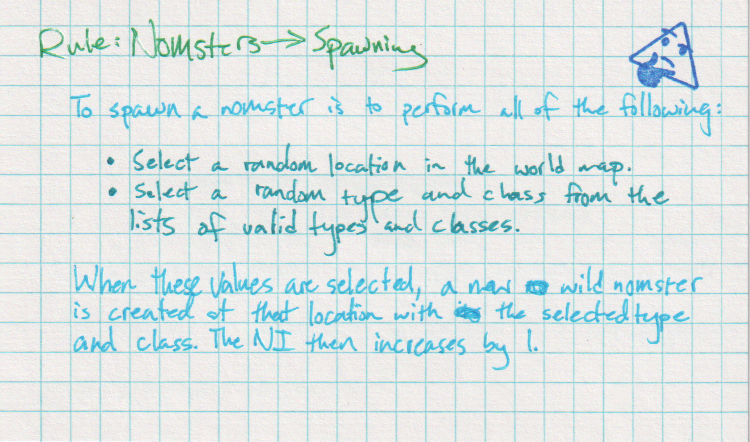 Rule: Nomsters→Spawning
To spawn a nomster is to perform all of the following:
• Select a random location in the world map.
• Select a random type and class from the
lists of valid types and classes.
When these values are selected, a new wild nomster
is created at that location with the selected type
and class. The NI then increases by 1.